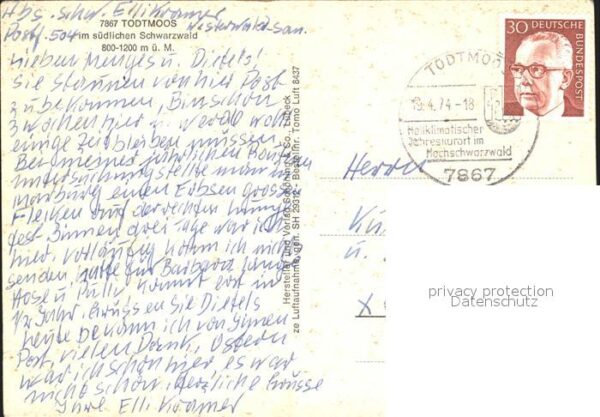 Abs. Schw. Elli Krämer
7867 TODTMOOS
Westerwaldsan.
im südlichen Schwarzwald
800-1200 m ü. M.
Lieben Menges u. Dietels!
Sie staunen von hier Post
zu bekommen, Bin schon
3 Wochen hier u. werde wohl
einige Zeit bleiben müssen,
Bei meiner jährlichen
untersuchung stellte man in
Marburg einen Erbsen grosse
Flecken auf der rechten Lunge
fest. Binnen drei Tage war ich
hier. Vorläufig kann ich nichts
senden für Barbara
Hose u Pulli kommt erst in
1/2 Jahr. Grüssen Sie Dietels
heute bekam ich von Ihnen
Post, vielen Dank, Ostern
war ich schon hier es war
nicht schön, Herzliche Grüsse
Ihre Elli Krämer
Hersteller und Verlag Schöning & Co., Lübeck
ze Luftaufnahme, gen. SH 29312 - Bestellnr. Tomo Luft 8437
30 DEUTSCHE BUNDESPOST
TODTMOOS
.4.74-18
Heilklimatischer
Jahreskurort im
Hochschwarzwald
7867
Herrn
u.
privacy protection
Datenschutz